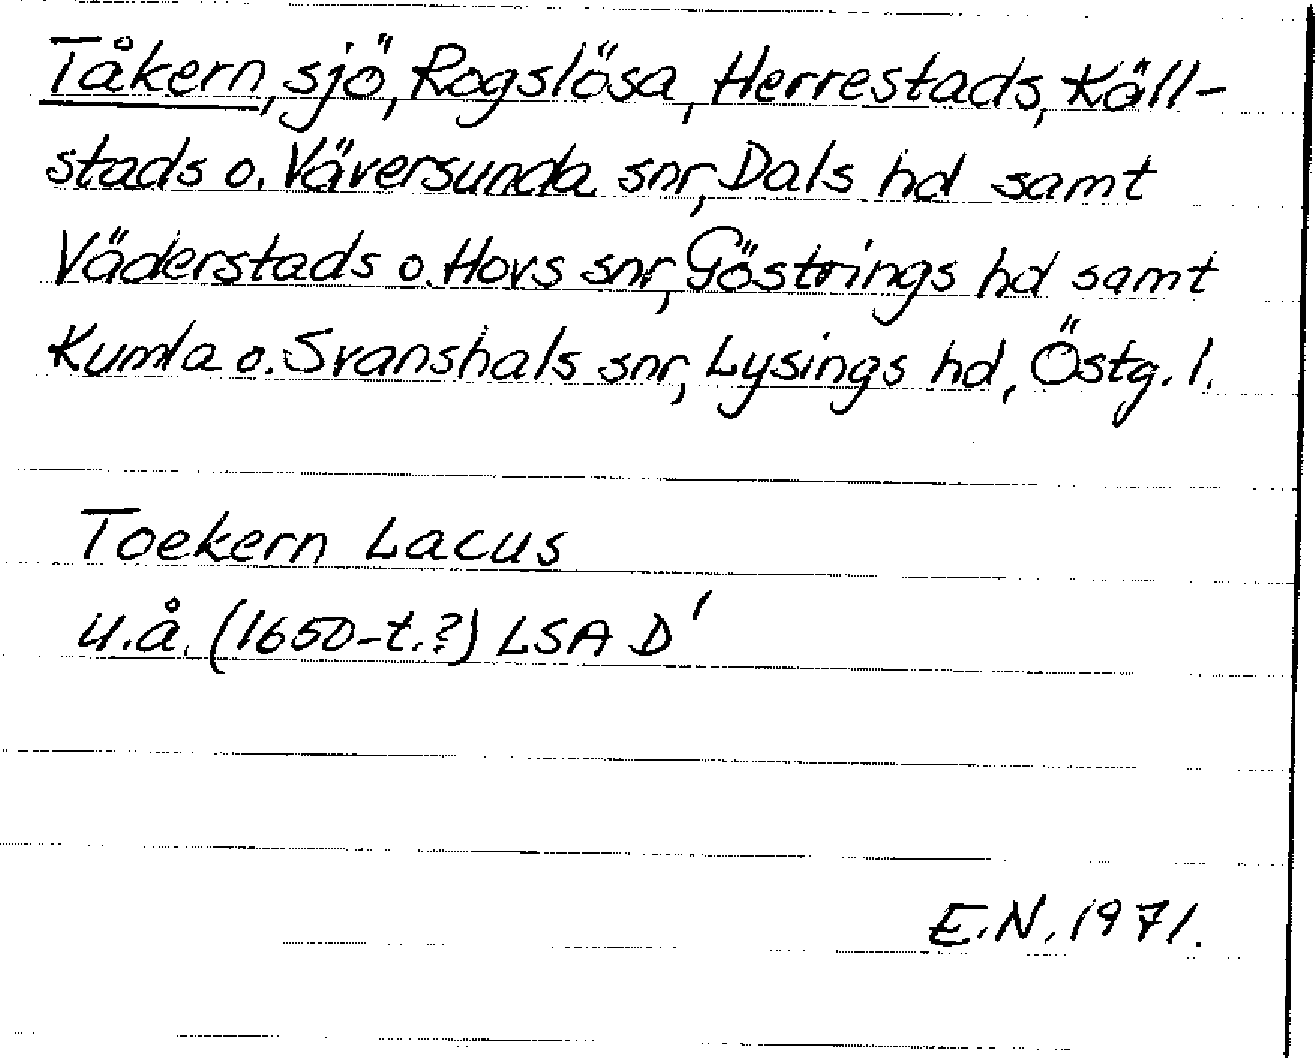 Tåkern, sjö, Rogslösa, Herrestads, Käll-
stads o. Väversunda snr, Dals hd samt
Väderstads o. Hovs snr, Göstrings hd samt
Kumla o. Svanshals snr, Lysings hd, Östg. l.
Toekern Lacus
u.å. (1650-t.?) LSA D'
E.N. 1971.